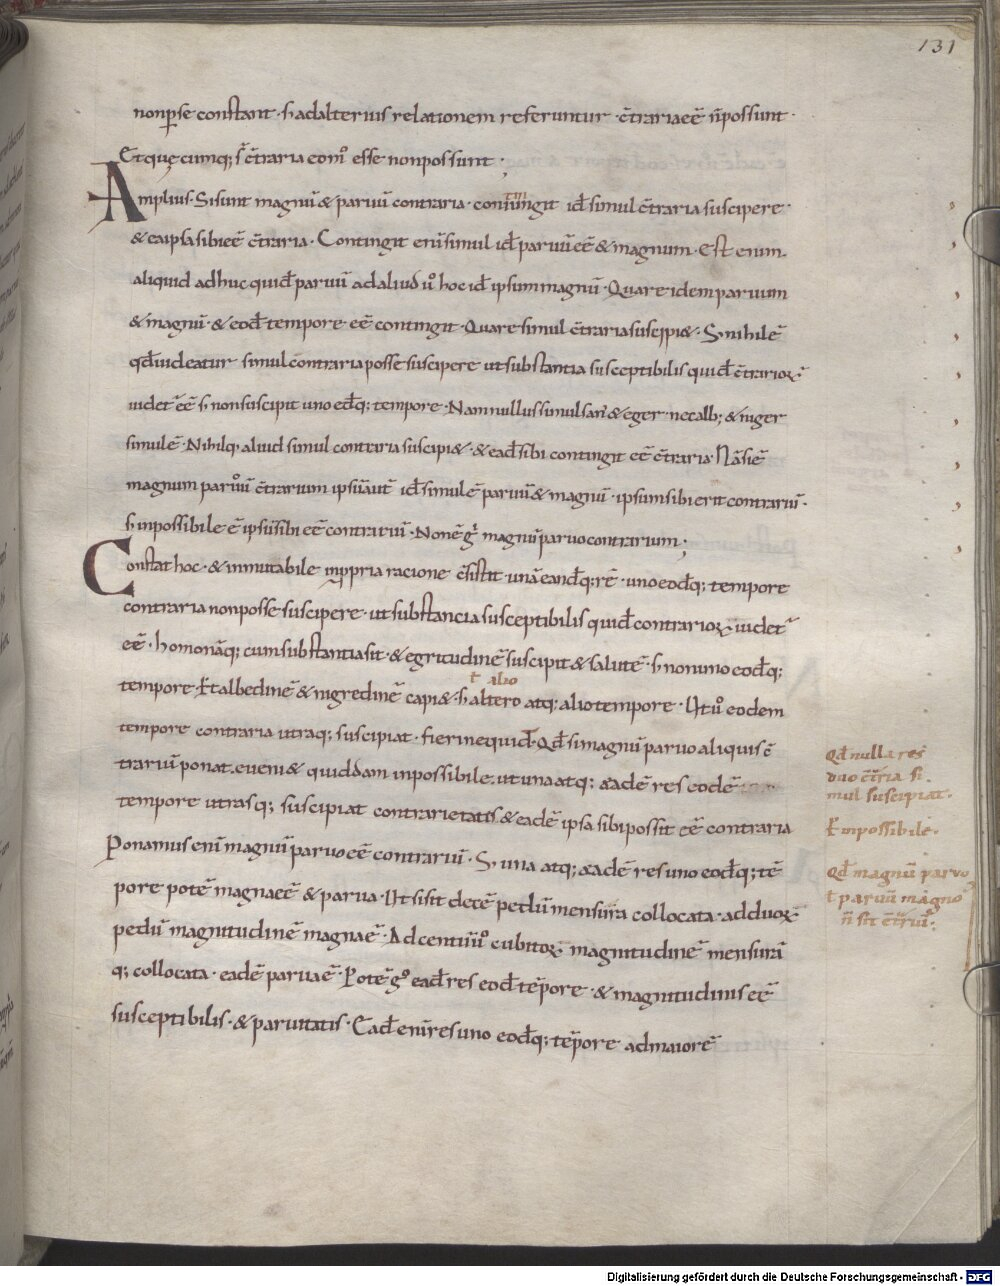 131
non p̱se constant · s; ad alterius relationem referuntur · c̄trariaeē n̄ possunt ·
Et quę cumq; s̄ c̄traria eom̊ esse non possunt ;
Amplius · Si sunt magnū & paruū contraria · continget id̄ simul c̄traria suscipere ·
& ea ipsa sibi eē c̄traria · Contingit eni simul id̄ paruū eē & magnum · Est enim
aliquid ad hoc quid̄ paruū ad aliud ů hoc id̄ ipsum magnū · Quare idem paruum
& magnū · & eod̄ tempore eē contingit · Quare simul c̄traria suscipi& · S; nihil ē
qd̄ uideatur simul contraria posse suscipere ut substantia susceptibilis quid̄ c̄trarioꝝ
uidet̄ eē s; non suscipit uno eod̄q; tempore · Nam nullus simul san' & eger · nec alb; & niger
simul ē · Nihilq; aliud simul contraria suscipi& · & ead̄ sibi contingit eē c̄traria · Nā si ē
magnum paruo c̄trarium ipsū aut̄ id̄ simul ē paruū & magnū · ipsum sibi erit contrariū ·
s; inpossibile ē ipsū sibi eē contrariū · Non ē g̊ magnū paruo contrarium ;
Constat hoc · & inmutabile in ꝓpria racione c̄sistit · unā eandq; rē · uno eodq; tempore
contraria non posse suscipere · ut substancia susceptibilis quid̄ contrarioꝝ uidet̄
eē · homo nāq; cum substantia sit · & egritudinē suscipit & salutē · s; non uno eod̄q;
ł alio
tempore Et albedinē & nigredinē capi& · s; altero atq; alio tempore · Ut ů eodem
tempore contraria utraq; suscipiat · fieri nequid · Qd̄ si magnū paruo aliquis c̄
trariū ponat · eueni& quiddam inpossibile · ut una atq; eadē res eodē
tempore utrasq; suscipiat contrarietatis & eadē ipsa sibi possit eē contraria
Ponamus eni magnū paruo eē contrariū · S; una atq; eadē res uno eod̄q; tē
pore potē magna eē & parua · Ut si sit decē pedū mensura collocata · ad duoꝝ
pedū magnitudinē magna ē · Ad centū ů cubitoꝝ magnitudinē mensurā
q; collocata · eadē parua ē · Potē g̊ ead̄ res eod̄ tēpore · & magnitudinis eē
susceptibilis · & paruitatis · Ead̄ eni res uno eod̄q; tēpore ad maiorē
Qd̄ nulla res
duo c̄t̄ria si
mul suscipiat ·
Ē inpossibile ·
Qd̄ magnū paruo
ł paruū magno
n̄ sit c̄t̄riū ·
Digitalisierung gefördert durch die Deutsche Forschungsgemeinschaft - DFG